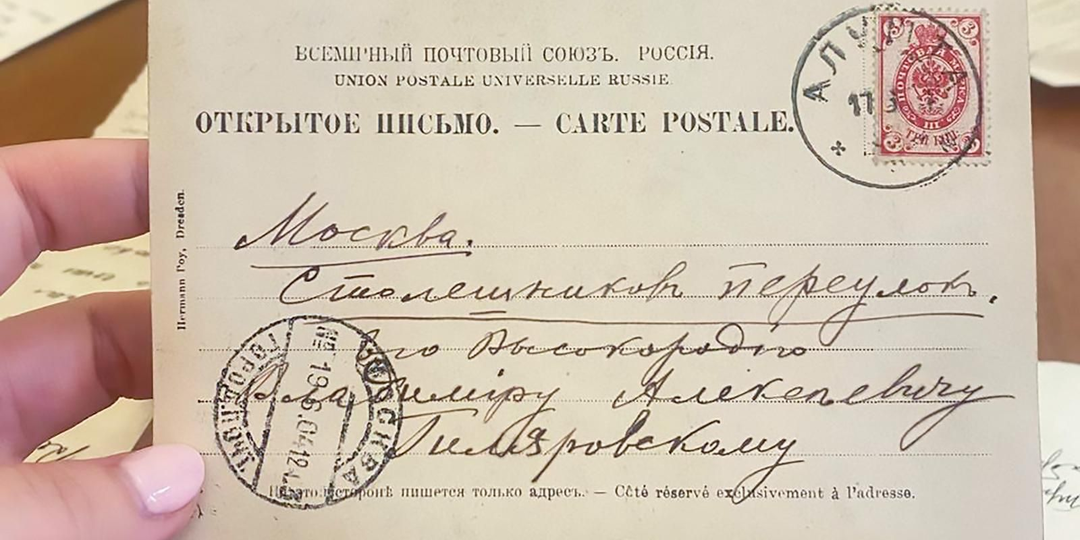 ВСЕМІРНЫЙ ПОЧТОВЫЙ СОЮЗЪ. РОССІЯ.
UNION POSTALE UNIVERSELLE RUSSIE.
ОТКРЫТОЕ ПИСЬМО. — CARTE POSTALE.
АЛУШТА
17
3 3
ПОЧТОВАЯ МАРКА
III
ТРИ КОП.
3 3
Hermann Poy, Dresden.
Москва.
Столешниковъ переулокъ.
Его Высокородію
Владиміру Алексѣевичу
Гиляровскому
МОСКВА
19.6.04
На этой сторонѣ пишется только адресъ. — Côté réservé exclusivement à l'adresse.